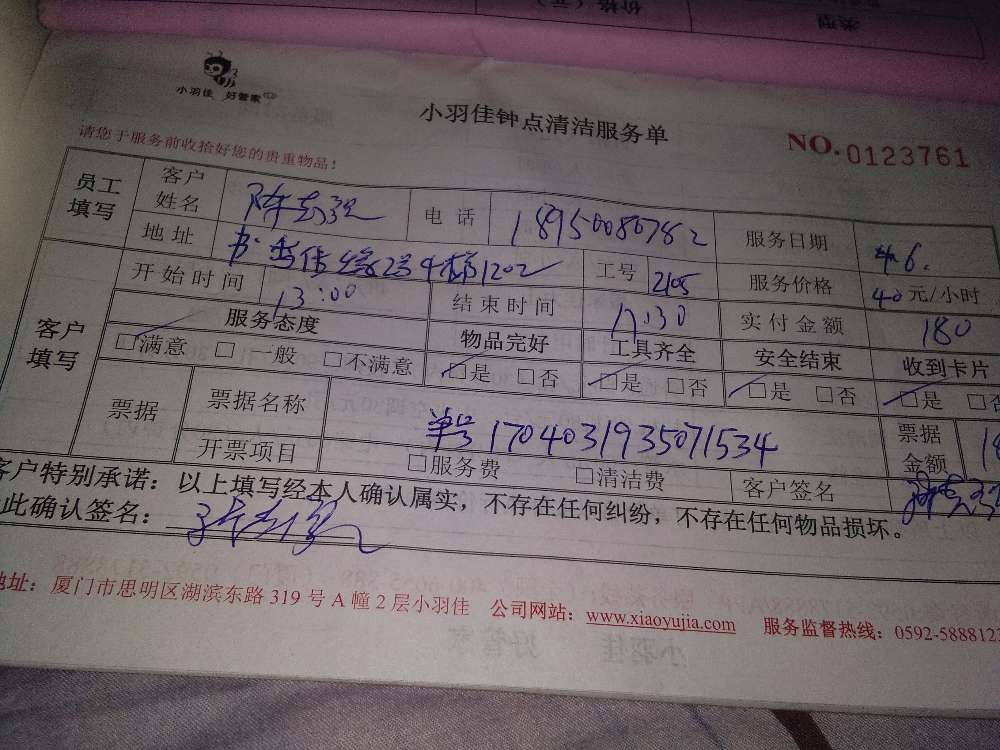 类型 价格（元）
小羽佳 好管家
小羽佳钟点清洁服务单
NO.0123761
请您于服务前收拾好您的贵重物品！
员工填写 客户姓名 陈 电话 18950080782 服务日期 4.6.
地址 4梯1202 工号 2105 服务价格 40元/小时
客户填写 开始时间 13:00 结束时间 17:30 实付金额 180
服务态度 物品完好 工具齐全 安全结束 收到卡片
□满意 □一般 □不满意 □是 □否 □是 □否 □是 □否 □是 □否
票据 票据名称 单号 1704031935071534 票据金额
开票项目 □服务费 □清洁费 客户签名
客户特别承诺：以上填写经本人确认属实，不存在任何纠纷，不存在任何物品损坏。
此确认签名：
地址：厦门市思明区湖滨东路319号A幢2层小羽佳 公司网站：www.xiaoyujia.com 服务监督热线：0592-5888123